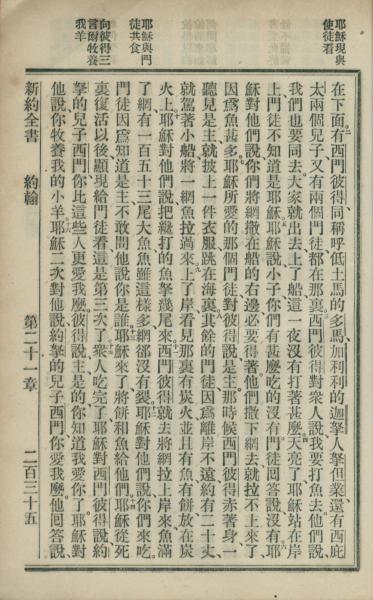 耶穌現與
使徒看
耶穌與門
徒共食
向彼得三
言爾牧養
我羊
在下面有西門彼得同稱呼低土馬的多馬加利利的迦拏人拏但業還有西庇
太兩個兒子又有兩個門徒都在那裏西門彼得對衆人說我要打魚去他們說
我們也要同去大家就出去上了船這一夜沒有打著甚麼天亮了耶穌站在岸
上門徒不知道是耶穌耶穌說小子你們有甚麼吃的沒有門徒囘答說沒有耶
穌對他們說你們將網撒在船的右邊必要得著他們撒下網去就拉不上來了
因爲魚甚多耶穌所愛的那個門徒對彼得說是主那時候西門彼得赤著身一
聽見是主就披上一件衣服跳在海裏其餘的門徒因爲離岸不遠約有二十丈
就駕著小船將一網魚拉過來上了岸看見那裏有炭火並且有魚有餅放在炭
火上耶穌對他們說把纔打的魚拏幾尾來西門彼得就去將網拉上岸來魚滿
了網有一百五十三尾大魚魚雖這樣多網卻沒有裂耶穌對他們說你們來吃
門徒因爲知道是主不敢問他說你是誰耶穌來了將餅和魚給他們耶穌從死
裏復活以後顯現給門徒看這是第三次了衆人吃完了耶穌對西門彼得說約
拏的兒子西門你比這些人更愛我麼彼得說主是的你知道我愛你了耶穌對
他說你牧養我的小羊耶穌二次對他說約拏的兒子西門你愛我麼他囘答說
新約全書 約翰 第二十一章 二百三十五